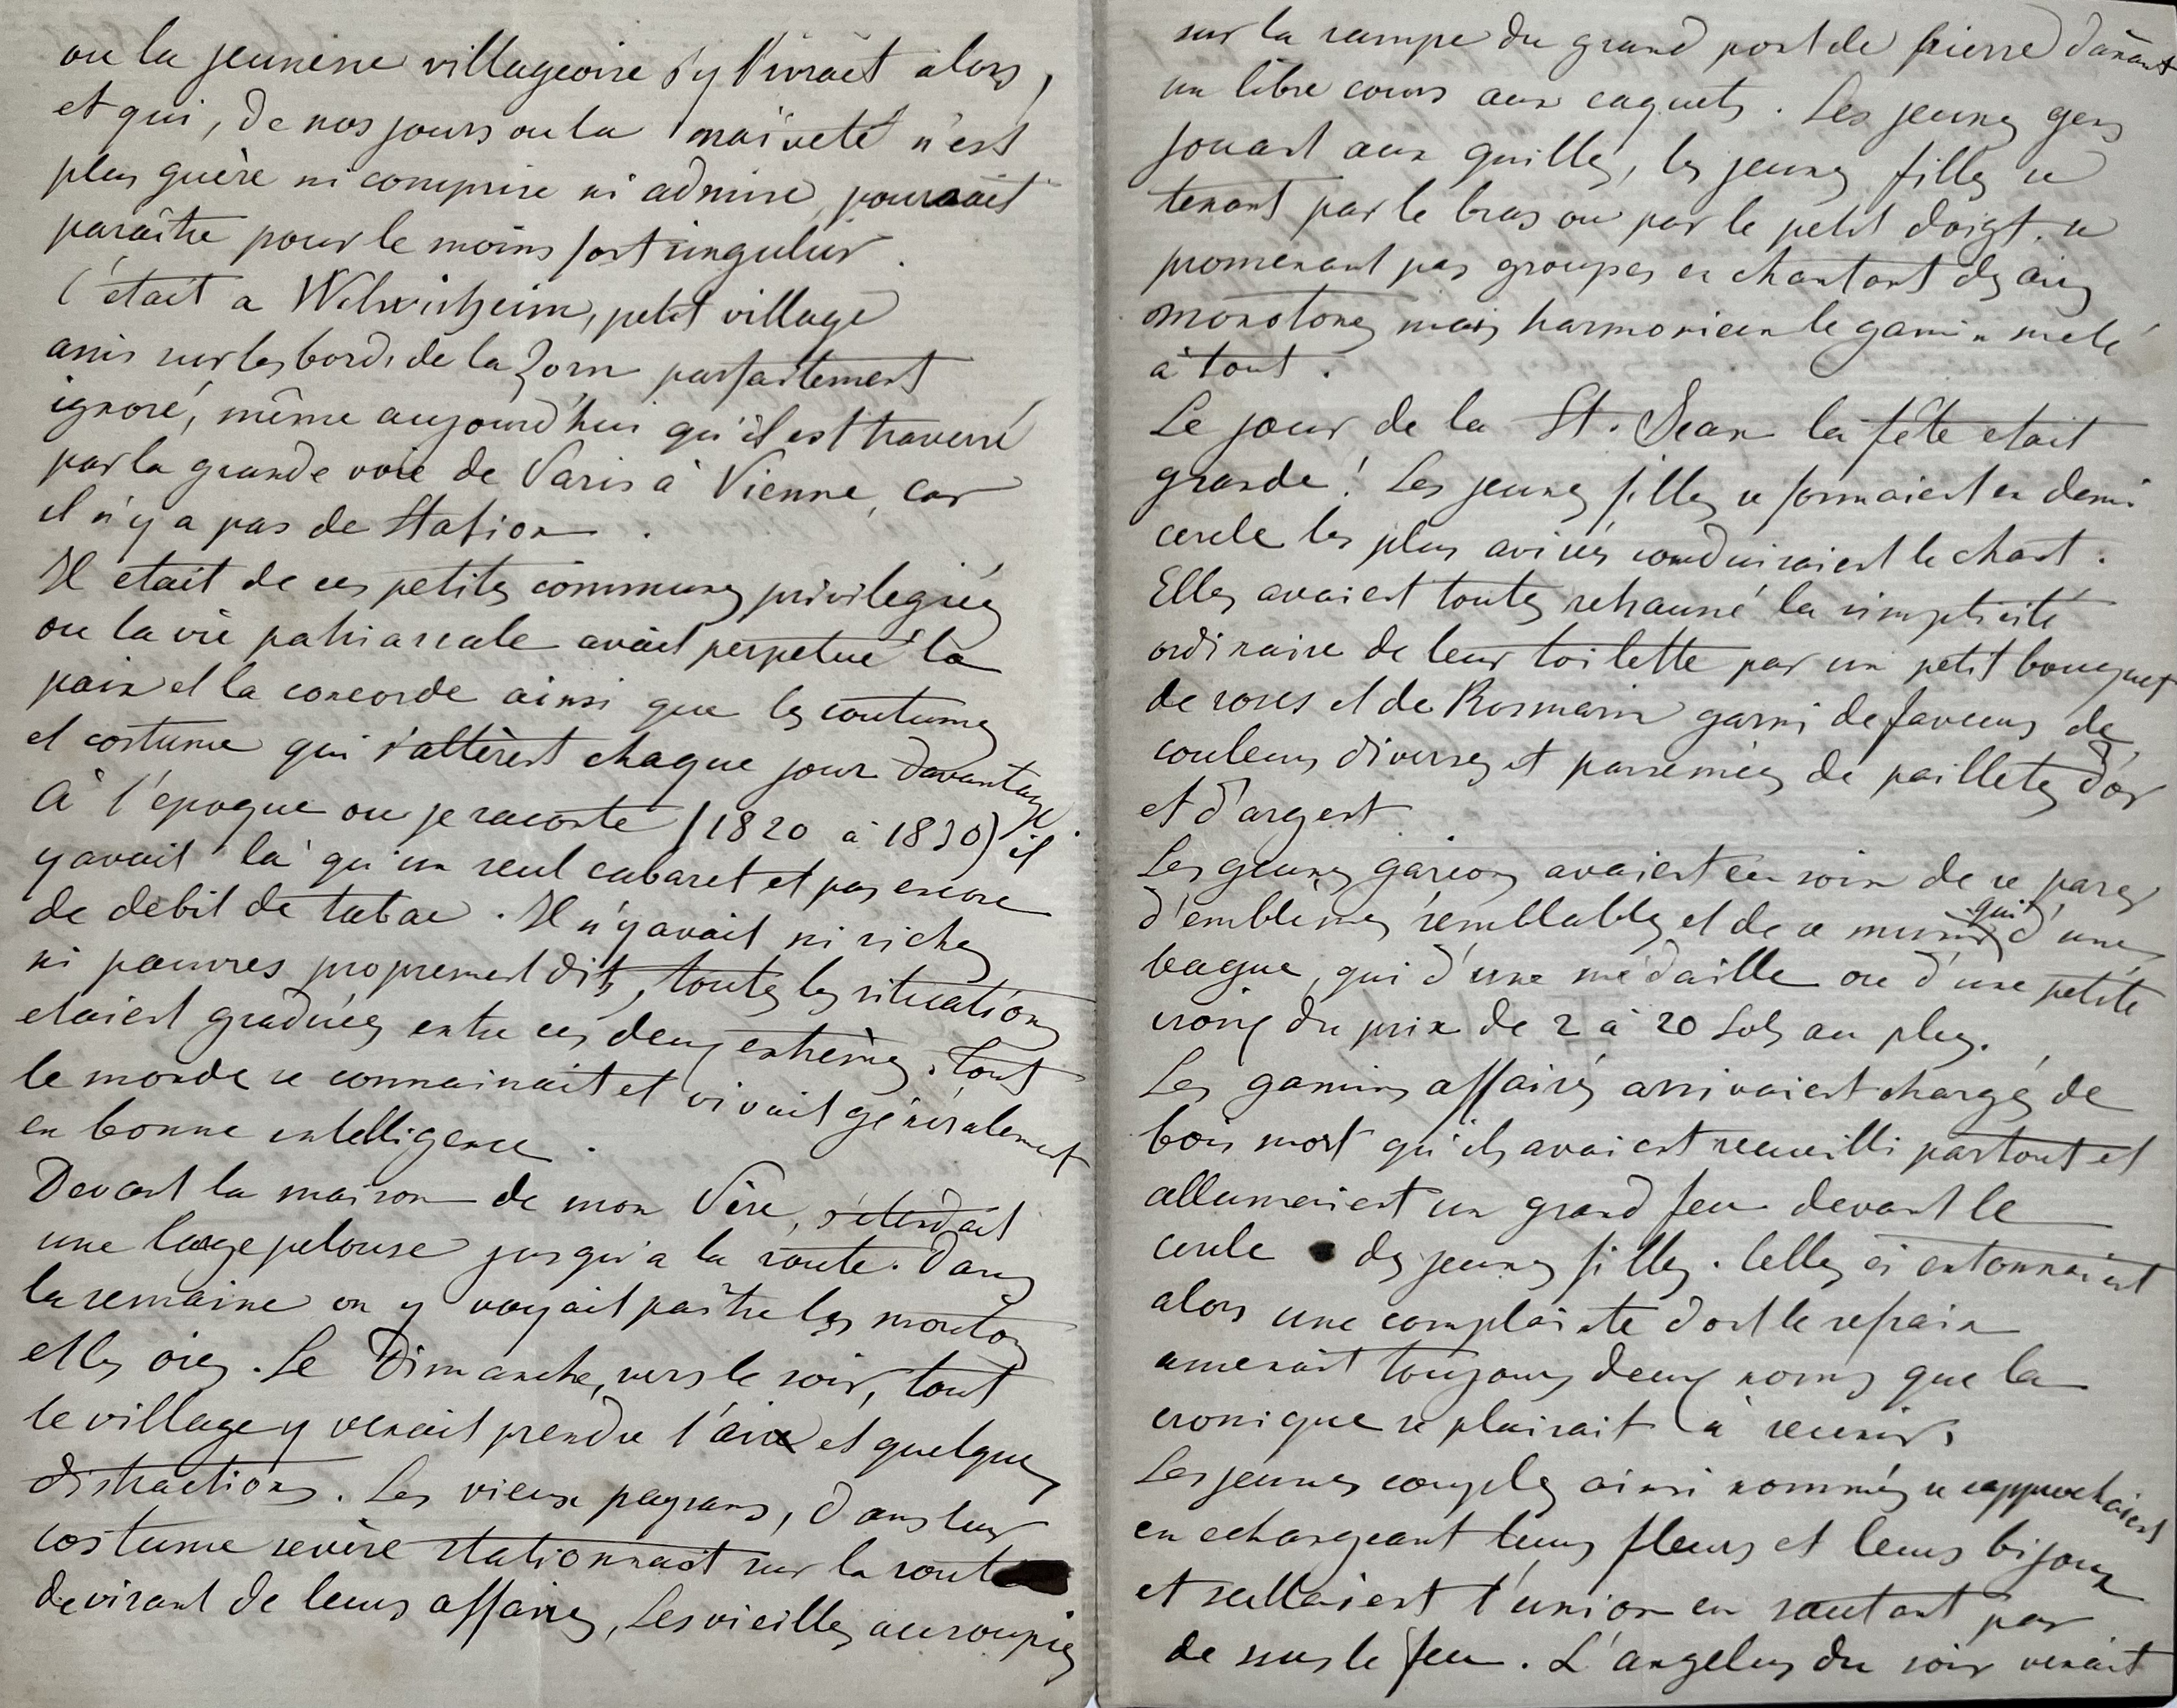 ou la jeunesse villageoise s'y livrait alors,
et qui, de nos jours ou la naïveté n'est
plus guère ni comprise ni admise, pourrait
paraître pour le moins fort singulier.
C'était a Wilwisheim, petit village
assis sur les bords de la Zorn parfaitement
ignoré, même aujourd'hui qu'il est traversé
par la grande voie de Paris à Vienne, car
il n'y a pas de Station.
Il etait de ces petites communes privilegiées
ou la vie patriarcale avait perpetué la
paix et la concorde ainsi que les coutumes
et costume qui s'altèrent chaque jour davantage.
À l'epoque ou je raconte (1820 à 1830) il
y avait là qu'un seul cabaret et pas encore
de debit de tabac. Il n'y avait ni riches
ni pauvres proprement dits, toutes les situations
etaient graduées entre ces deux extrèmes. Tout
le monde se connaissait et vivait généralement
en bonne intelligence.
Devant la maison de mon Père, s'étendait
une large pelouse jusqu'a la route. Dans
la semaine on y voyait paître les moutons
et les oies. Le Dimanche, vers le soir, tout
le village y venait prendre l'air et quelques
distractions. Les vieux paysans, dans leur
costume sevère stationnait sur la route
devisant de leurs affaires, Les vieilles accroupies
sur la rampe du grand pont de pierre dânant
un libre cours aux caquets. Les jeunes gens
jouant aux quilles, les jeunes filles se
tenant par le bras ou par le petit doigt. se
promenant pas groupes en chantant des airs
monotones mais harmonieux le gamin melé
à tout.
Le jour de la St. Jean la fête etait
grande! Les jeunes filles se formaient en demi
cercle les plus avisés conduisaient le chant.
Elles avaient toutes rehaussé la simplicité
ordinaire de leur toilette par un petit bouquet
de roses et de Rosmarin garni de faveurs de
couleurs diverses et parsemées de paillettes d'or
et d'argent
Les jeunes garçons avaient eu soin de se parer
d'emblèmes semblables et de se munir qui d'une
bague, qui d'une médaille ou d'une petite
croix du prix de 2 à 20 Sols au plus.
Les gamins affairés arrivaient chargés de
bois mort qu'ils avaient recueilli partout et
allumaient un grand feu devant le
cercle des jeunes filles. Celles ci entonnaient
alors une complainte dont le refrain
amenait toujours deux noms que la
cronique se plaisait à reunir,
Les jeunes couples ainsi nommés se rapprochaient
en echangeant leurs fleurs et leurs bijoux
et scellaient l'union en sautant par
dessus le feu. L'angelus du soir venait